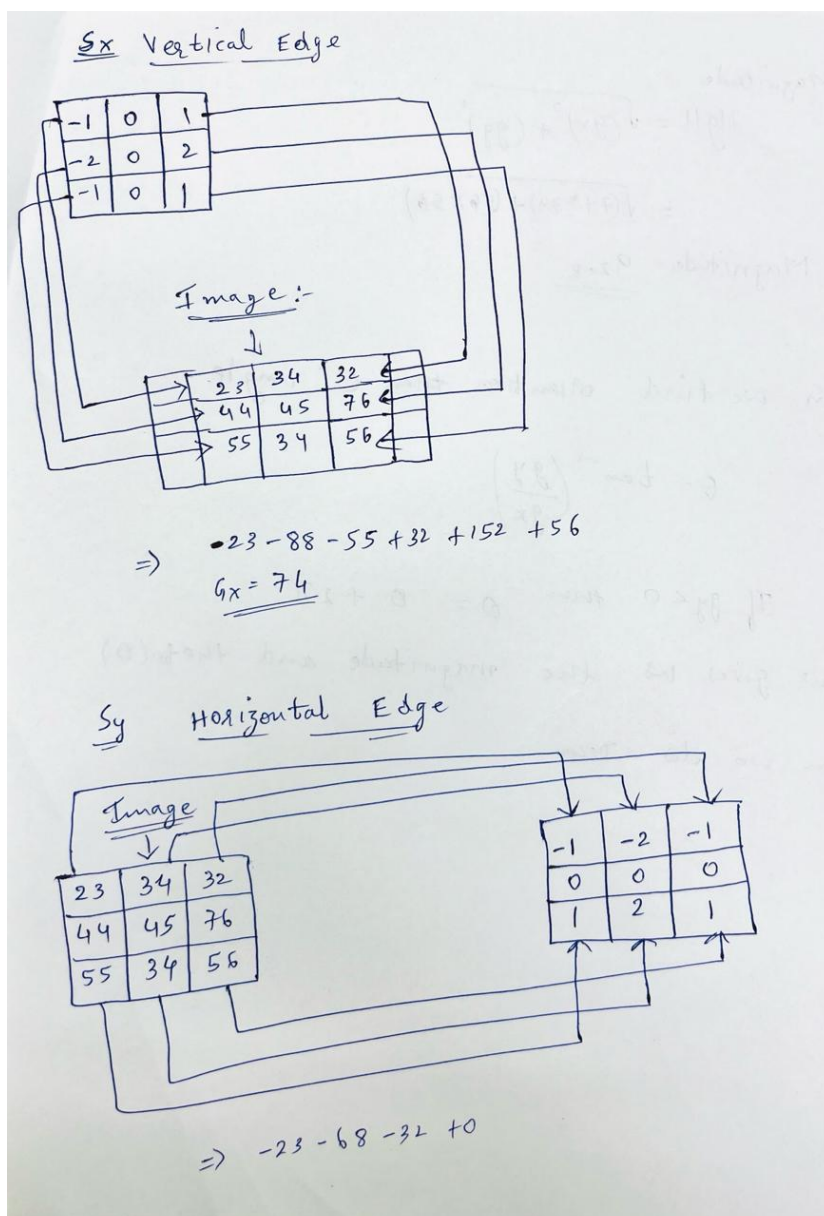 Sx Vertical Edge
-1 0 1
-2 0 2
-1 0 1
Image:-
23 34 32
44 45 76
55 34 56
=> -23 -88 -55 +32 +152 +56
Gx = 74
Sy Horizontal Edge
Image
23 34 32
44 45 76
55 34 56
-1 -2 -1
0 0 0
1 2 1
=> -23 -68 -32 +0